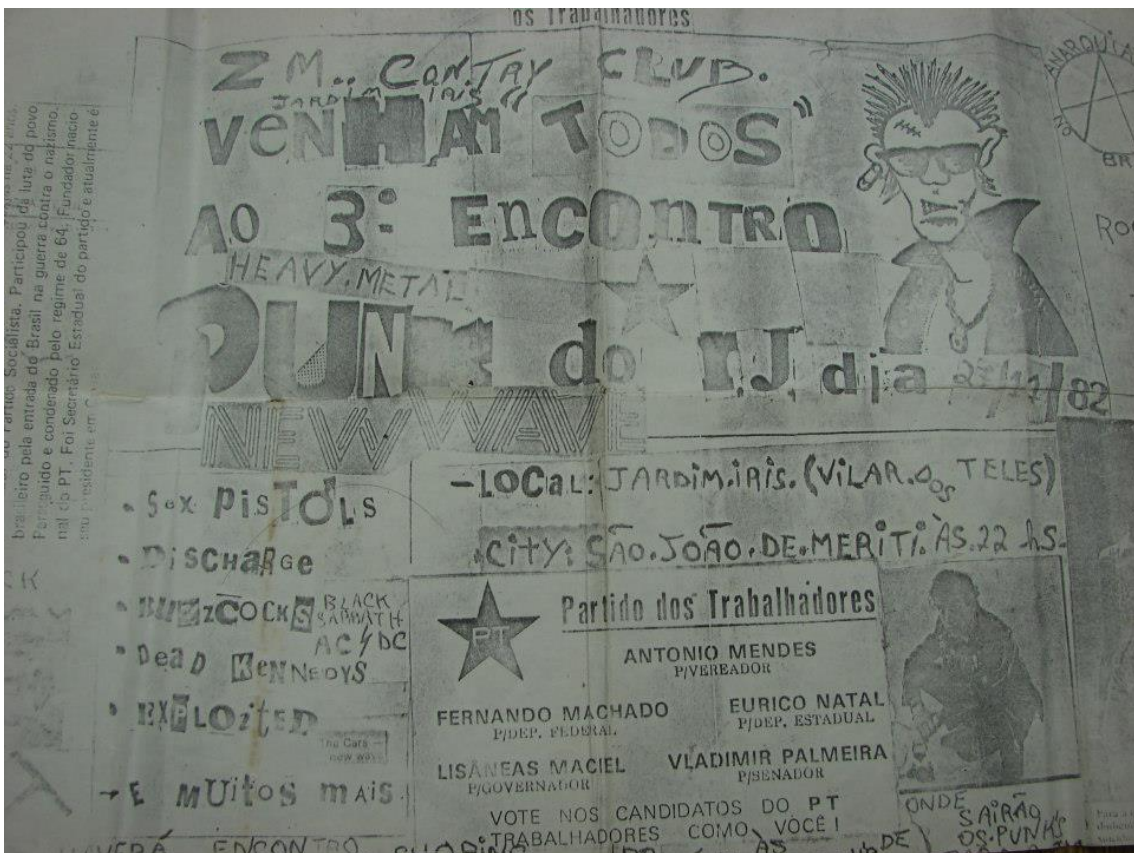 os Trabalhadores
2 M.. CON.TRY CLUB.
JARDIM IRIS "
VENHAM TODOS"
AO 3º ENCONTRO
HEAVY.METAL
PUNK do rJ dia /11/82
NEW WAVE
• SeX PiSTOLS
• DiSCHARGe
• BUZZCOCKS
BLACK
SABBATH
AC⚡DC
• Dead KeNNeDYS
• EXPLOiteD
The Cars —
new wave
→ E MUitos mais.
- LOCaL: JARDIM.IRIS. (VILAR.DOS TELES)
CitY: SÃO.JOÃO.DE.MERITI. ÀS.22 hS-
PT
Partido dos Trabalhadores
ANTONIO MENDES
P/VEREADOR
FERNANDO MACHADO
P/DEP. FEDERAL
EURICO NATAL
P/DEP. ESTADUAL
LISÂNEAS MACIEL
P/GOVERNADOR
VLADIMIR PALMEIRA
P/SENADOR
VOTE NOS CANDIDATOS DO PT
TRABALHADORES COMO VOCÊ!
ONDE
SAIRÃO
OS.PUNK'S
HAVERÁ ENCONTRO
ANARQUIA
NO
BR
ROC
do Partido Socialista. Participou da luta do povo
brasileiro pela entrada do Brasil na guerra contra o nazismo.
Perseguido e condenado pelo regime de 64. Fundador nacio
nal do PT. Foi Secretário Estadual do partido e atualmente é
seu presidente em